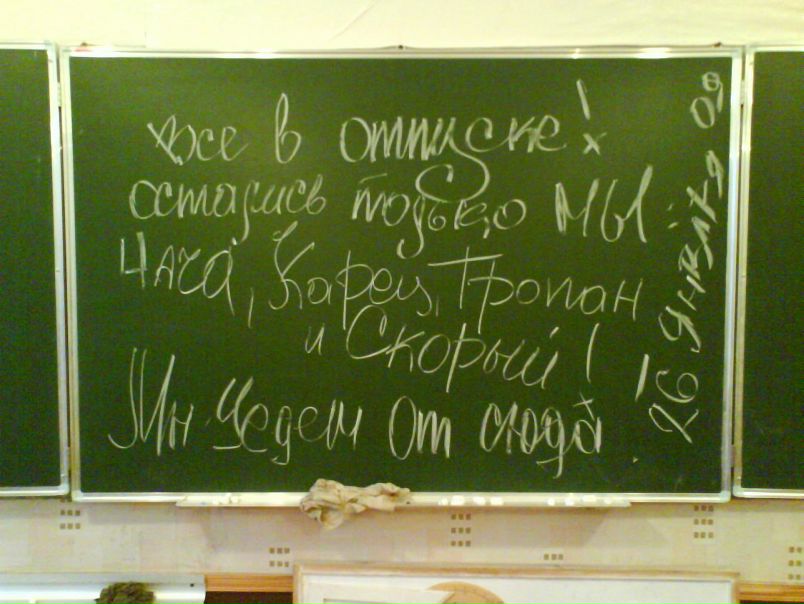 все в отпуске!
остались только мы
Чача, Карец, Тропан
и Скорый!
Мы уедем от сюда
26 Января 09